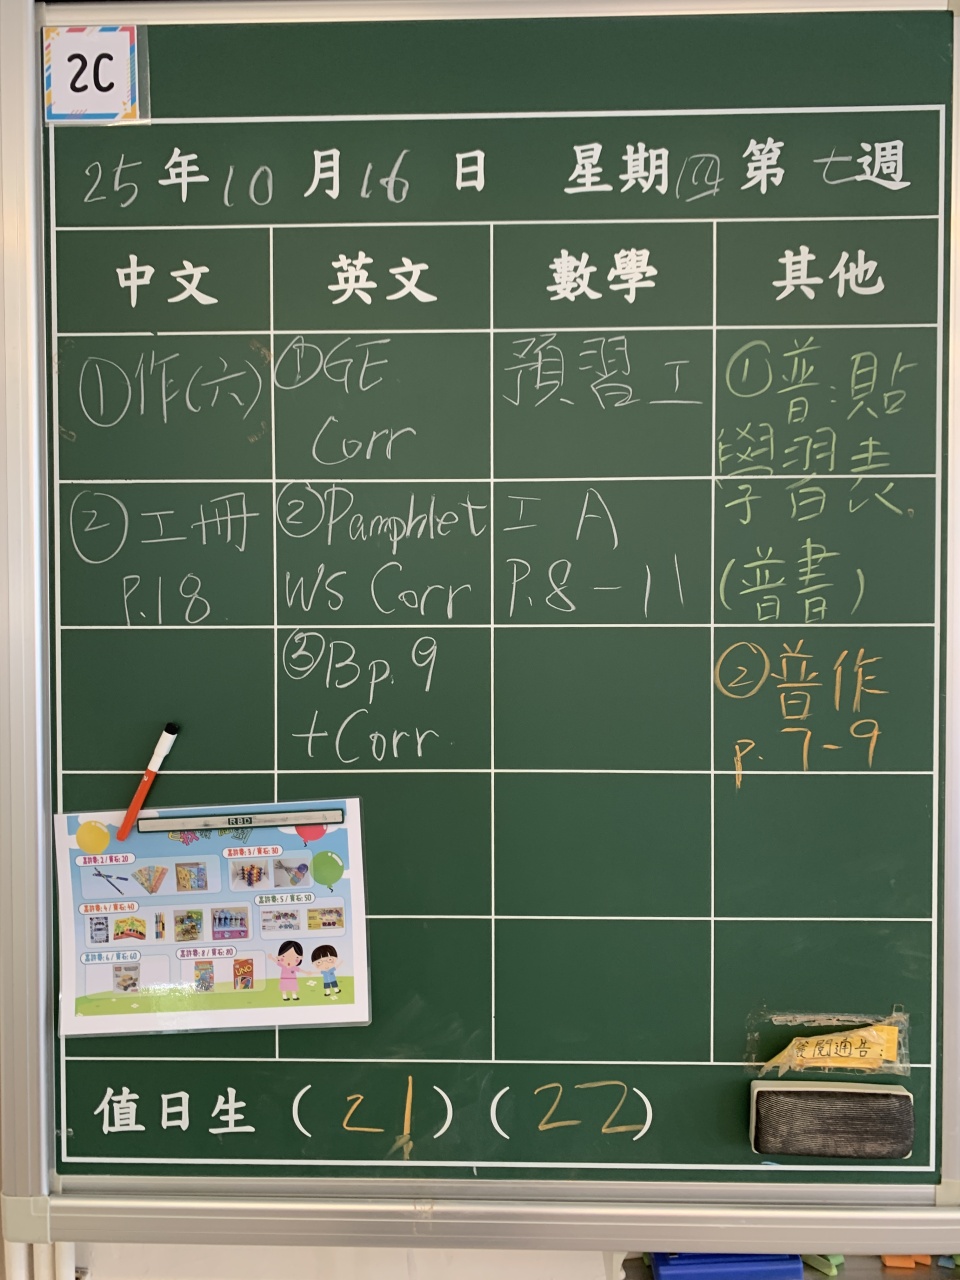 2C
25年10月16日 星期四 第七週
中文 英文 數學 其他
①作(六)
②工冊
P.18
①GE
Corr
②Pamphlet
WS Corr
③Bp.9
+Corr
預習工
工A
P.8-11
①普:貼
學習表
(普書)
②普作
p.7-9
RBD
UNO
閱通告:
值日生(21)(22)